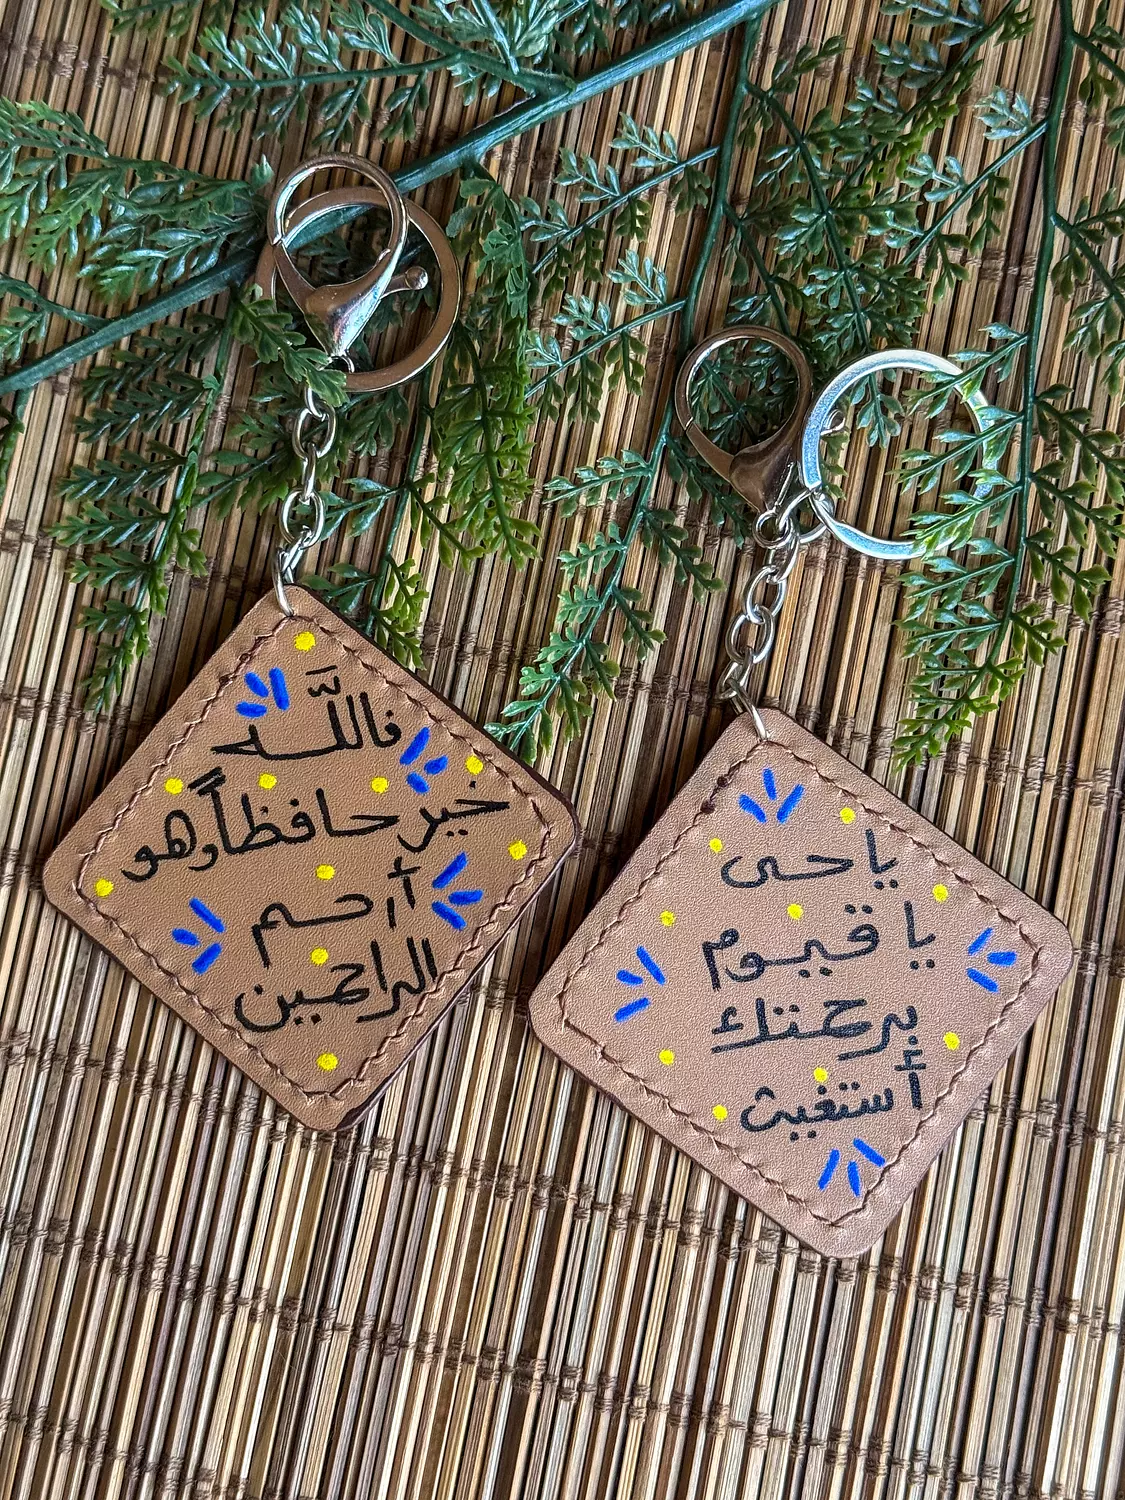 فاللَّه
خير حافظاً وهو
أرحم
الراحمين
يا حى
يا قيوم
برحمتك
أستغيث